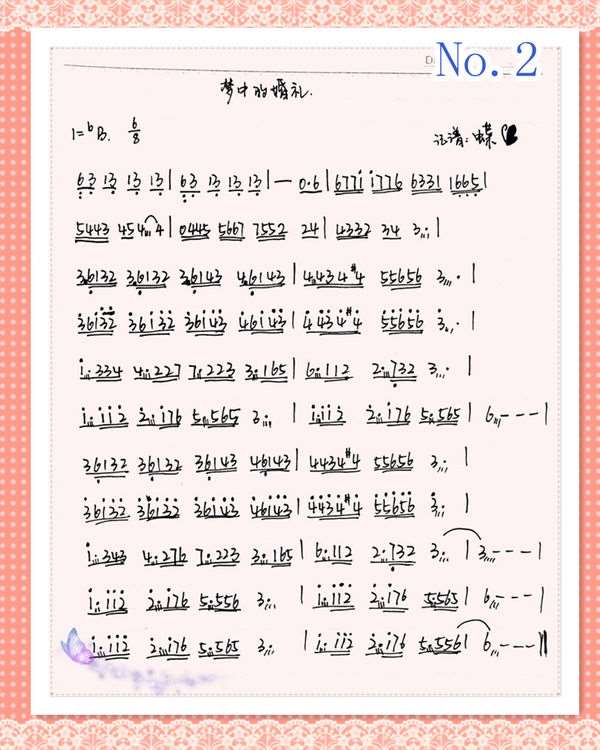 No. 2
梦中的婚礼.
1=ᵇB. 6/8
记谱: 蝶
63 13 13 13 | 63 13 13 13 | — 0·6 | 6771 1776 6331 1665 |
5443 454 4 | 0445 5667 7552 24 | 4332 34 3 |
36132 36132 36143 46143 | 4434#4 55656 3 · |
36132 36132 36143 46143 | 4434#4 55656 3 · |
1 334 4 227 7 223 3 165 | 6 112 2 732 3 · |
1 112 2 176 5 565 3 | 1 112 2 176 5 565 | 6 - - - |
36132 36132 36143 46143 | 4434#4 55656 3 |
36132 36132 36143 46143 | 4434#4 55656 3 |
1 343 4 276 7 223 3 165 | 6 112 2 732 3 | 3 - - - |
1 112 2 176 5 556 3 | 1 112 2 176 5565 | 6 - - - |
1 112 2 176 5 565 3 | 1 112 2 176 5 556 | 6 - - - ‖